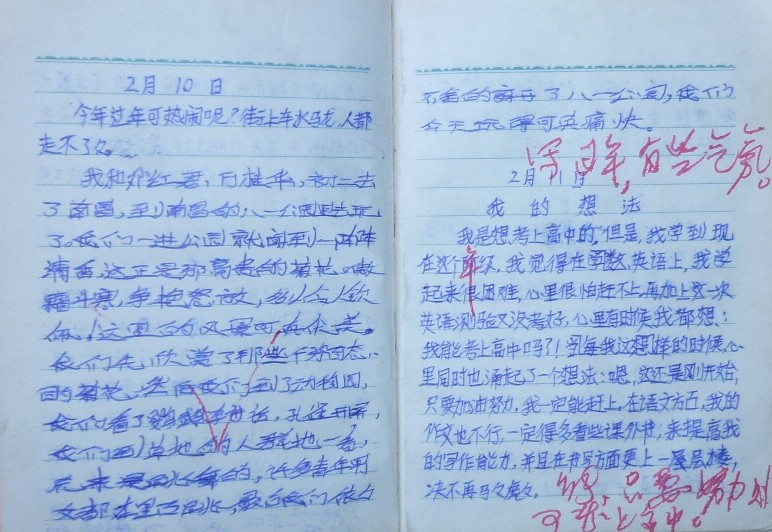 2月 10 日
今年过年可热闹呢?街上车水马龙,人都
走不了么。
我和邓红君,万桂华,初二去
了南昌,至到南昌的八一公园去玩
了。我们一进公园就闻到一阵阵
清香,这正是那高贵的菊花。傲
霜斗寒,争艳怒放,多么令人钦
佩,这里的风景可真优美。
我们先欣赏了那些千姿百态
的菊花,然后我们到了动物园,
我们看了 孔雀开屏,
我们到草地 的人
后来 是跳舞的,许多青年男
女都在里面跳,最后我们依依
不舍的离开了八一公园,我们
今天玩得可真痛快。
写过年,有些气氛。
2月 11 日
我 的 想 法
我是想考上高中的,但是,我学到现
在这个年级,我觉得在学数、英语上,我学
起来很困难,心里很怕赶不上,再加上这一次
英语测验又没考好,心里有时候我都想:
我能考上高中吗?!到每我这想样的时候,心
里同时也涌起了一个想法:嗯,这还是刚开始,
只要加油努力,我一定能赶上,在语文方面,我的
作文也不行,一定得多看些课外书,来提高我
的写作能力,并且在书写方面更上一层层楼,
决不再马马虎虎,
够,只要努力到
可考上高中。